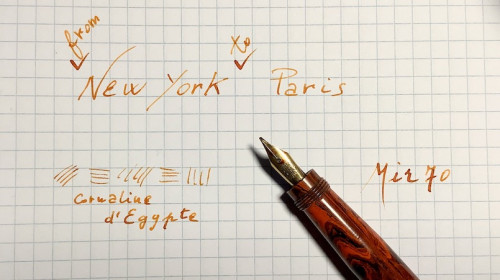 from
to
New York Paris
Cornaline
d'Egypte
Mir 70